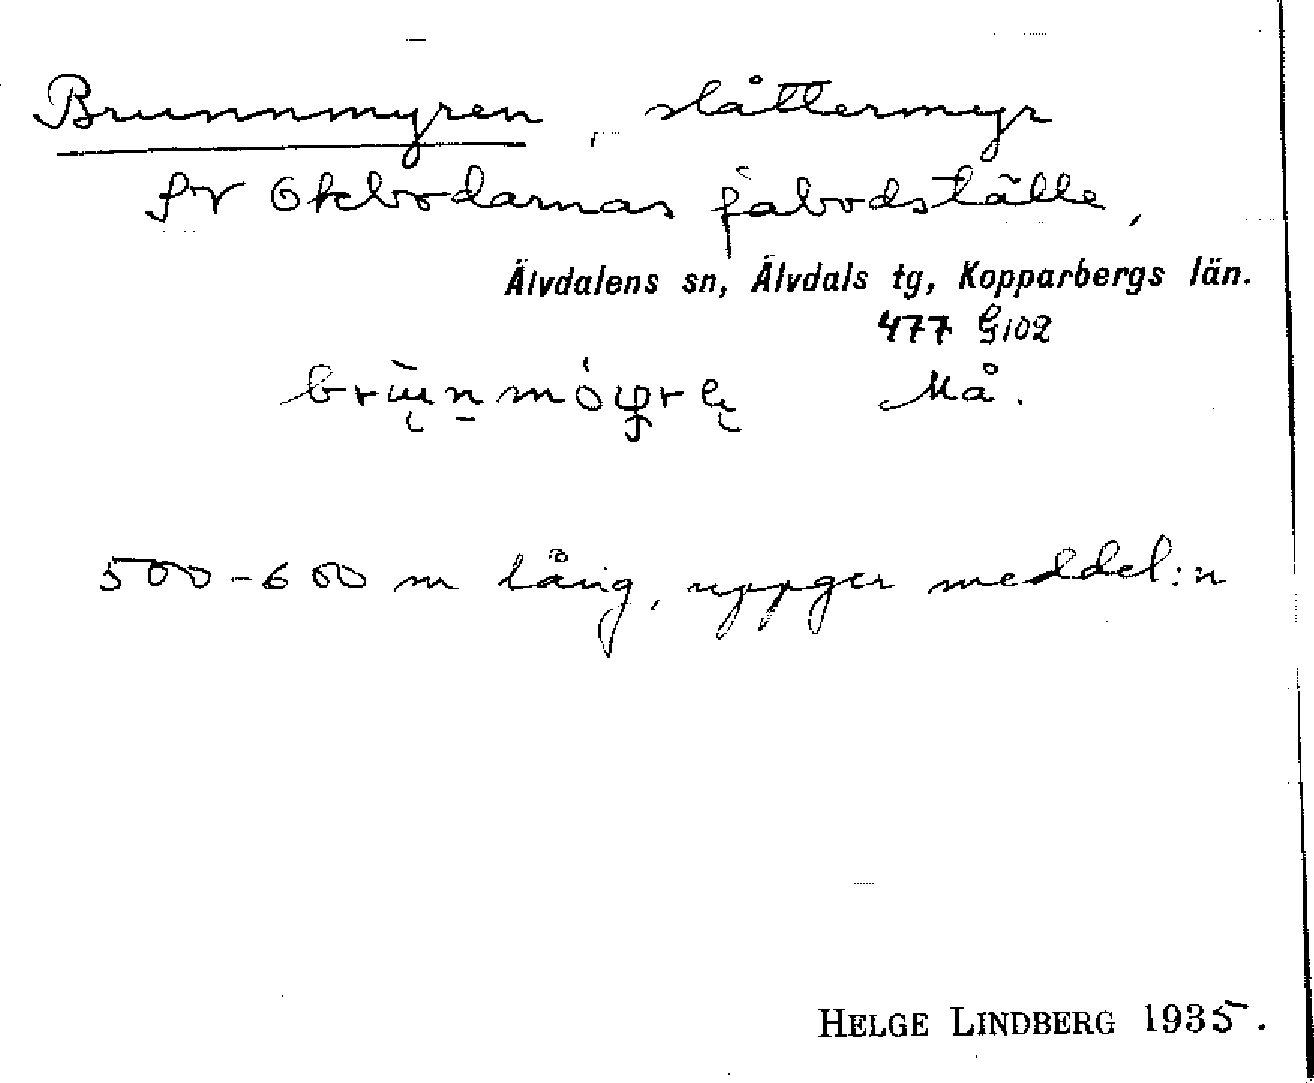 Brunnmyren, slåttermyr
fr Okbodarnas fäbodställe,
Älvdalens sn, Älvdals tg, Kopparbergs län.
477 G102
Må.
500-600 m lång, uppger meddel:n
HELGE LINDBERG 1935.